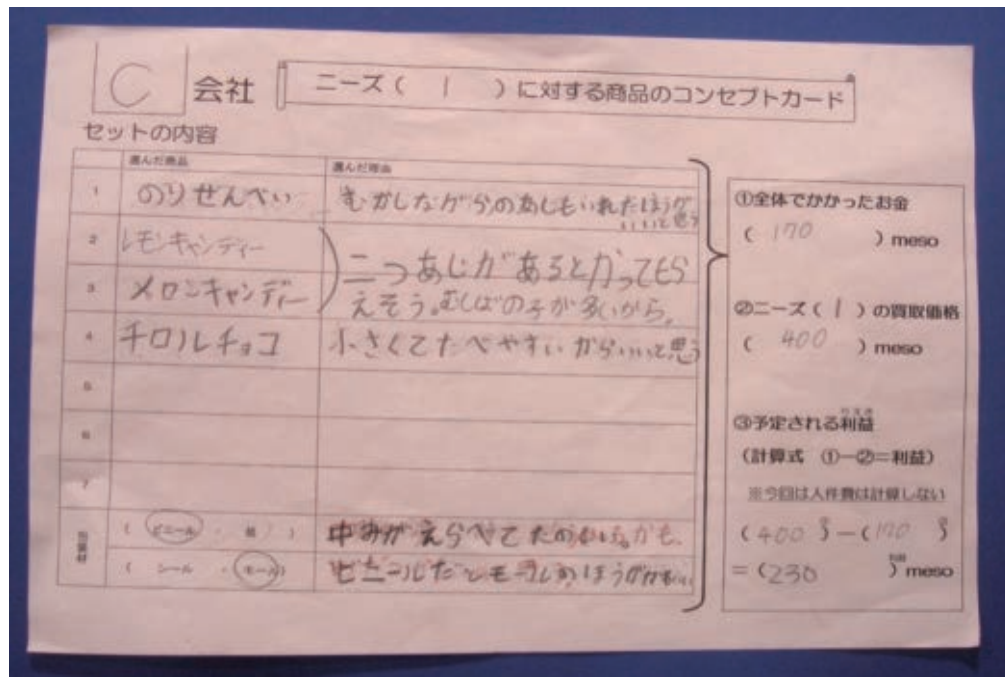 C 会社 ニーズ ( 1 ) に対する商品のコンセプトカード
セットの内容
選んだ商品 選んだ理由
1 のりせんべい むかしながらのあじもいれたほうが
いいと思う
2 レモンキャンディー 二つあじがあるとかってもら
3 メロンキャンディー えそう。むしばの子が多いから。
4 チロルチョコ 小さくてたべやすいからいいと思う
5
6
7
( ビニール ・ 紙 ) 中みがえらべてたのしいかも、
( シール ・ モール) ビニールだとモールのほうがかわいい
①全体でかかったお金
( 170 ) meso
②ニーズ ( 1 ) の買取価格
( 400 ) meso
③予定される利益
(計算式 ①―②=利益)
※今回は人件費は計算しない
(400 ) − (170 )
= (230 ) meso